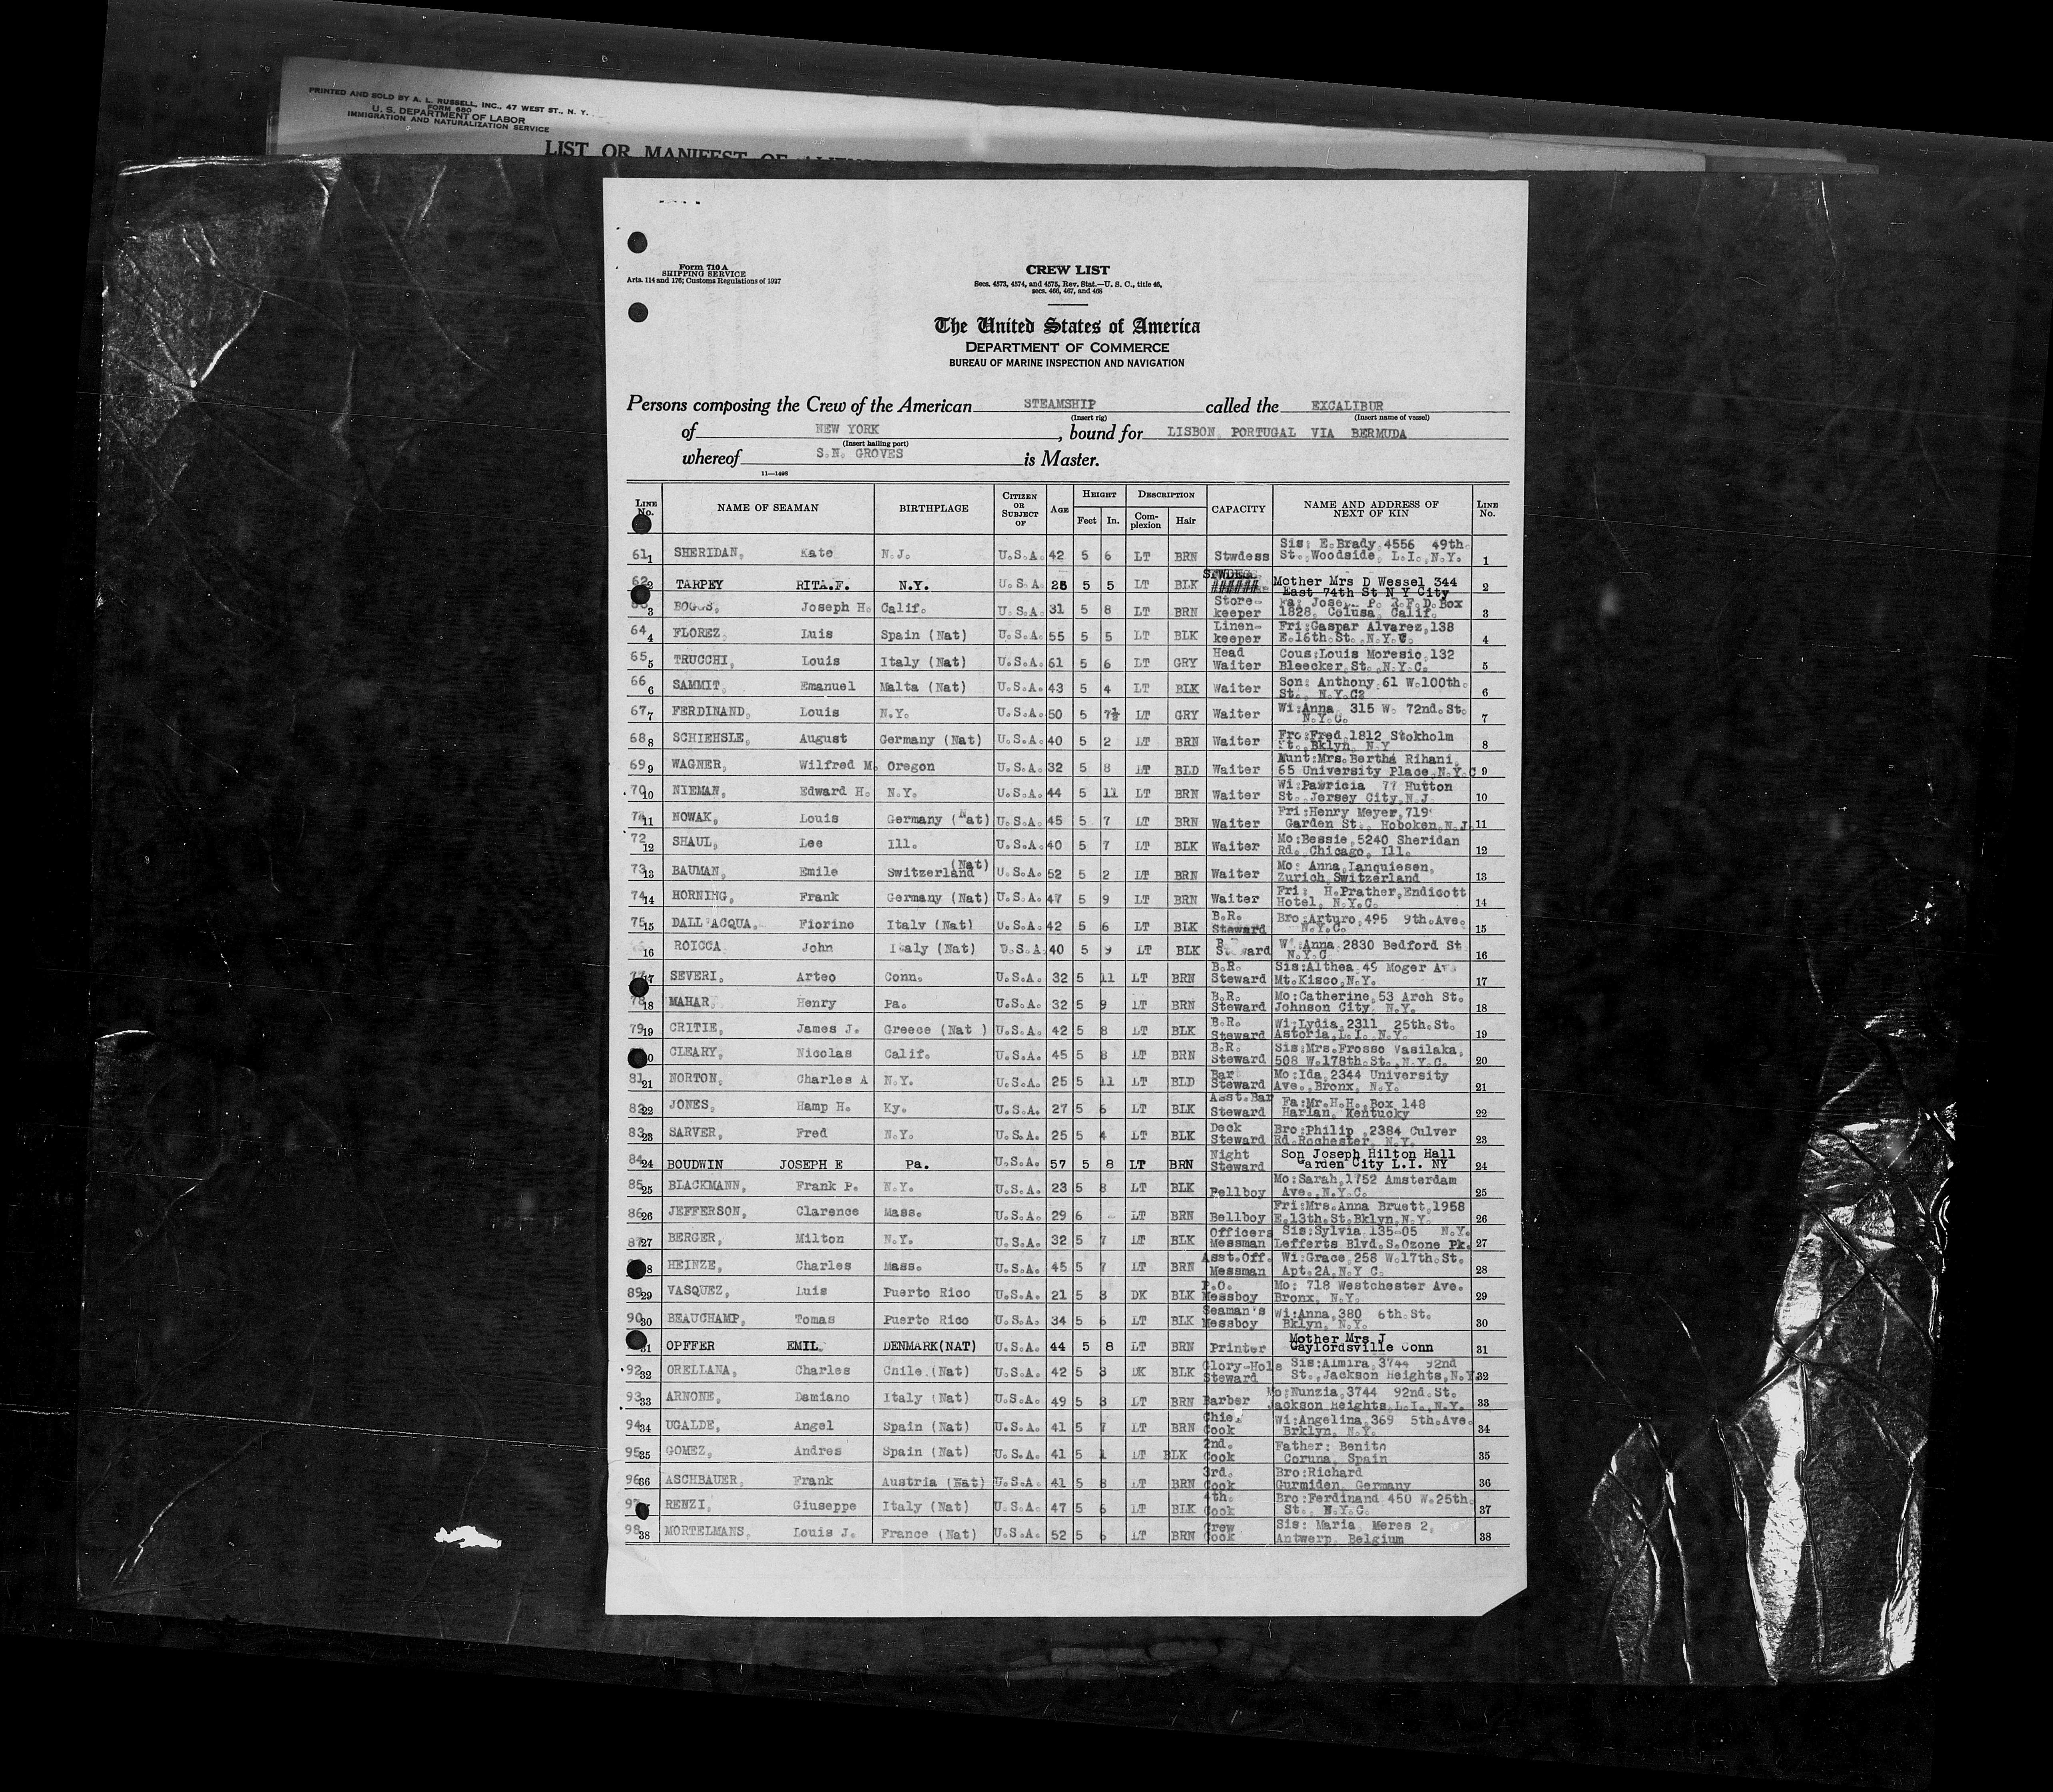 PRINTED AND SOLD BY A. L. RUSSELL, INC., 47 WEST ST., N. Y.
FORM 680
U. S. DEPARTMENT OF LABOR
IMMIGRATION AND NATURALIZATION SERVICE
LIST OR MANIFEST OF
Form 710 A
SHIPPING SERVICE
Arts. 114 and 176; Customs Regulations of 1937
CREW LIST
Secs. 4573, 4574, and 4575, Rev. Stat.—U. S. C., title 46,
secs. 466, 467, and 468
The United States of America
DEPARTMENT OF COMMERCE
BUREAU OF MARINE INSPECTION AND NAVIGATION
Persons composing the Crew of the American STEAMSHIP called the EXCALIBUR
(Insert rig) (Insert name of vessel)
of NEW YORK, bound for LISBON, PORTUGAL VIA BERMUDA
(Insert hailing port)
whereof S.N. GROVES is Master.
11—1498
LINE No. NAME OF SEAMAN BIRTHPLACE CITIZEN OR SUBJECT OF AGE HEIGHT Feet In. DESCRIPTION Complexion Hair CAPACITY NAME AND ADDRESS OF NEXT OF KIN LINE No.
61 1 SHERIDAN, Kate N.J. U.S.A. 42 5 6 LT BRN Stwdess Sis: E.Brady 4556 49th St. Woodside, L.I. N.Y. 1
62 2 TARPEY RITA.F. N.Y. U.S.A. 25 5 5 LT BLK STWDESS Mother Mrs D Wessel 344 East 74th St N Y City 2
3 BOGGS, Joseph H. Calif. U.S.A. 31 5 8 LT BRN Store-keeper Fa: P. R.F.D. Box 1828, Colusa, Calif. 3
64 4 FLOREZ, Luis Spain (Nat) U.S.A. 55 5 5 LT BLK Linen-keeper Fri:Gaspar Alvarez,138 E.16th.St. N.Y.C. 4
65 5 TRUCCHI, Louis Italy (Nat) U.S.A. 61 5 6 LT GRY Head Waiter Cous:Louis Moresio,132 Bleecker St. N.Y.C. 5
66 6 SAMMIT, Emanuel Malta (Nat) U.S.A. 43 5 4 LT BLK Waiter Son: Anthony 61 W.100th. St. N.Y.C? 6
67 7 FERDINAND, Louis N.Y. U.S.A. 50 5 7½ LT GRY Waiter Wi:Anna 315 W. 72nd.St. N.Y.C. 7
68 8 SCHIEHSLE, August Germany (Nat) U.S.A. 40 5 2 LT BRN Waiter Fro:Fred,1812 Stokholm St. Bklyn, N.Y 8
69 9 WAGNER, Wilfred M. Oregon U.S.A. 32 5 8 LT BLD Waiter Aunt:Mrs.Bertha Rihani, 65 University Place,N.Y.C 9
70 10 NIEMAN, Edward H. N.Y. U.S.A. 44 5 11 LT BRN Waiter Wi:Patricia 77 Hutton St. Jersey City,N.J. 10
71 11 NOWAK, Louis Germany (Nat) U.S.A. 45 5 7 LT BRN Waiter Fri:Henry Meyer,719 Garden St. Hoboken,N.J. 11
72 12 SHAUL, Lee Ill. U.S.A. 40 5 7 LT BLK Waiter Mo:Bessie,5240 Sheridan Rd. Chicago, Ill. 12
73 13 BAUMAN, Emile Switzerland (Nat) U.S.A. 52 5 2 LT BRN Waiter Mo: Anna,Lanquiesen, Zurich,Switzerland 13
74 14 HORNING, Frank Germany (Nat) U.S.A. 47 5 9 LT BRN Waiter Fri: H.Prather,Endicott Hotel, N.Y.C. 14
75 15 DALL'ACQUA, Fiorino Italy (Nat) U.S.A. 42 5 6 LT BLK B.R. Steward Bro:Arturo,495 9th.Ave. N.Y.C. 15
16 ROICCA John Italy (Nat) U.S.A. 40 5 9 LT BLK Anna 2830 Bedford St N.Y.C 16
77 17 SEVERI, Arteo Conn. U.S.A. 32 5 11 LT BRN B.R. Steward Sis:Althea 49 Moger Av Mt.Kisco,N.Y. 17
78 18 MAHAR, Henry Pa. U.S.A. 32 5 9 LT BRN B.R. Steward Mo:Catherine,53 Arch St. Johnson City, N.Y. 18
79 19 CRITIE, James J. Greece (Nat ) U.S.A. 42 5 8 LT BLK B.R. Steward Wi:Lydia,2311 25th.St. Astoria,L.I. N.Y. 19
CLEARY, Nicolas Calif. U.S.A. 45 5 8 LT BRN B.R. Steward Sis:Mrs.Frosso Vasilaka, 508 W.178th.St. N.Y.C. 20
81 21 NORTON, Charles A N.Y. U.S.A. 25 5 11 LT BLD Bar Steward Mo:Ida,2344 University Ave. Bronx, N.Y. 21
82 22 JONES, Hamp H. Ky. U.S.A. 27 5 6 LT BLK Asst.Bar Steward Fa:Mr.H.H. Box 148 Harlan, Kentucky 22
83 23 SARVER, Fred N.Y. U.S.A. 25 5 4 LT BLK Deck Steward Bro:Philip ,2384 Culver Rd.Rochester, N.Y. 23
84 24 BOUDWIN JOSEPH E Pa. U.S.A. 57 5 8 LT BRN Night Steward Son Joseph Hilton Hall Garden City L.I. NY 24
85 25 BLACKMANN, Frank P. N.Y. U.S.A. 23 5 8 LT BLK Bellboy Mo:Sarah,1752 Amsterdam Ave. N.Y.C. 25
86 26 JEFFERSON, Clarence Mass. U.S.A. 29 6 - LT BRN Bellboy Fri:Mrs.Anna Bruett,1958 E.13th.St.Bklyn,N.Y. 26
87 27 BERGER, Milton N.Y. U.S.A. 32 5 7 LT BLK Officers Messman Sis:Sylvia 135-05 N.Y. Lefferts Blvd.S.Ozone Pk. 27
8 HEINZE, Charles Mass. U.S.A. 45 5 7 LT BRN Asst.Off. Messman Wi:Grace,258 W.17th.St. Apt.2A,N.Y C. 28
89 29 VASQUEZ, Luis Puerto Rico U.S.A. 21 5 8 DK BLK P.O. Messboy Mo: 718 Westchester Ave. Bronx, N.Y. 29
90 30 BEAUCHAMP, Tomas Puerto Rico U.S.A. 34 5 6 LT BLK Seaman's Messboy Wi:Anna,380 6th.St. Bklyn, N.Y. 30
31 OPFFER EMIL DENMARK(NAT) U.S.A. 44 5 8 LT BRN Printer Mother Mrs J Gaylordsville Conn 31
92 32 ORELLANA, Charles Chile (Nat) U.S.A. 42 5 8 DK BLK Glory-Hole Steward Sis:Almira,3744 92nd St., Jackson Heights,N.Y. 32
93 33 ARNONE, Damiano Italy (Nat) U.S.A. 49 5 8 LT BRN Barber Mo:Nunzia,3744 92nd.St. Jackson Heights,L.I. N.Y. 33
94 34 UGALDE, Angel Spain (Nat) U.S.A. 41 5 7 LT BRN Chief Cook Wi:Angelina,369 5th.Ave. Brklyn, N.Y. 34
95 35 GOMEZ, Andres Spain (Nat) U.S.A. 41 5 1 LT BLK 2nd. Cook Father: Benito Coruna, Spain 35
96 36 ASCHBAUER, Frank Austria (Nat) U.S.A. 41 5 8 LT BRN 3rd. Cook Bro:Richard Gurmiden, Germany 36
RENZI, Giuseppe Italy (Nat) U.S.A. 47 5 6 LT BLK 4th. Cook Bro:Ferdinand 450 W.25th. St. N.Y.C. 37
98 38 MORTELMANS, Louis J. France (Nat) U.S.A. 52 5 6 LT BRN Crew Cook Sis: Maria, Meres 2, Antwerp, Belgium 38